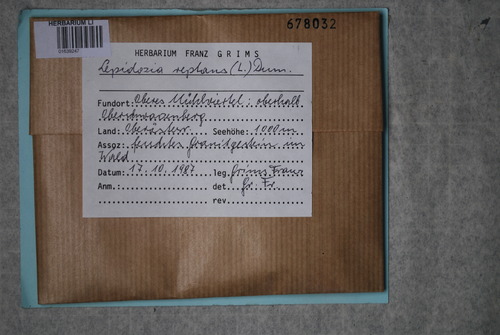 HERBARIUM LI
678032
HERBARIUM FRANZ GRIMS
Lepidozia reptans (L.) Dum.
Fundort: Oberes Mühlviertel: oberhalb
Oberschwarzenberg
Land: Oberösterr. Seehöhe: 1000 m
Assgz: feuchtes Granitgestein im
Wald
Datum: 17.10.1987 leg. Grims Franz
Anm.: det. Gr. Fr.
rev.